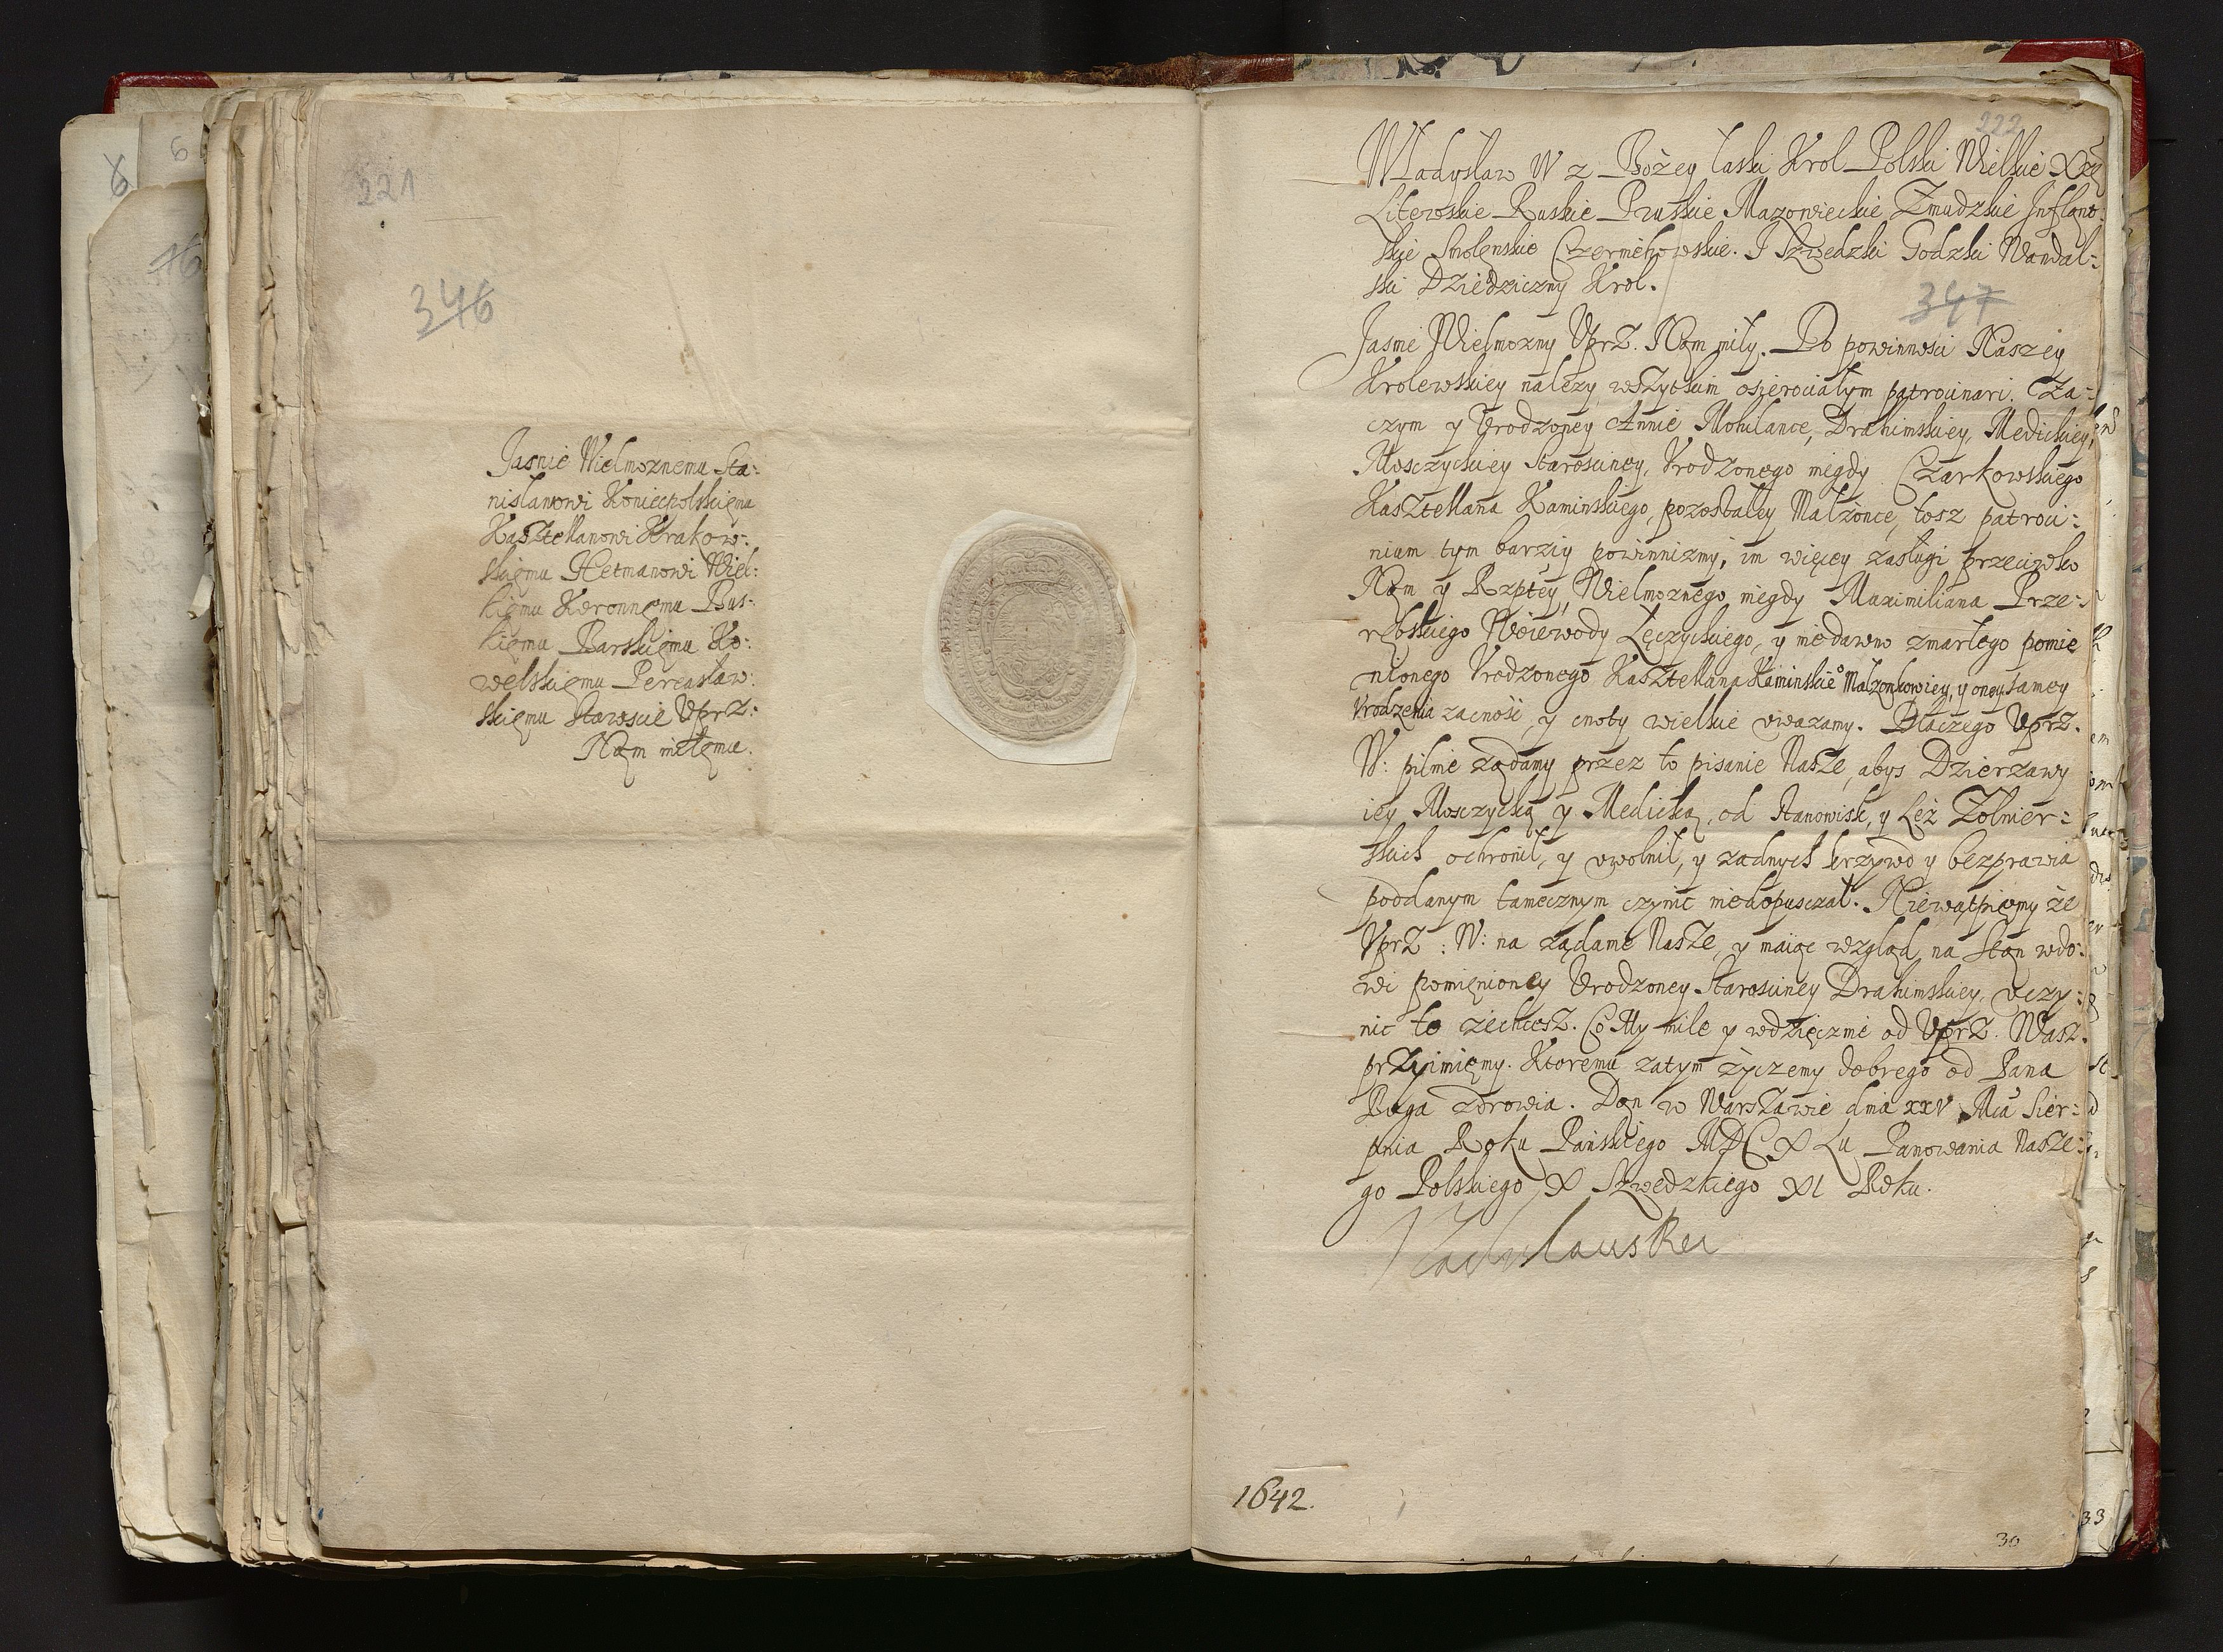 221
346
Jasnie Wielmoznemu Sta:
nisławowi Koniecpolskiemu
Kasztellanowi Krakow:
skiemu Hetmanowi Wiel:
kiemu Koronnemu Bus:
kiemu Barskiemu Ko:
welskiemu Pereasław:
skiemu Staroscie Vprz:
Nam miłemu.
222
Władysław IV z Bożey łaski Krol Polski Wielkie Xże
Litewskie Ruskie Pruskie Mazowieckie Zmudzkie Inflant:
skie Smolenskie Czerniehowskie. I Szwedzki Godzki Wandal:
ski Dziedziczny Krol.
347
Jasnie Wielmozny Vprz. Nam miły. Do powinnosci Naszey
Krolewskiey nalezy, wszytkim osierociałym patrocinari. Za:
czym y Vrodzoney Annie Mohilance, Drahimskiey, Medickiey,
Mosczyckiey Starosciney, Vrodzonego niegdy Czarkowskiego
Kasztellana Kaminskiego, pozostałey Małżonce, tosz patroci:
nium tym barziy powinnizmy, im więcey zasługi przeciwko
Nam y Rzptey, Wielmoznego niegdy Maximiliana Prze:
rębskiego Woiewody Łęczyckiego, y niedawno zmarłego pomie
nionego Vrodzonego Kasztellana Kaminskiego Małzonkowiey, y oney samey
Vrodzenia zacnosć, y cnoty wielkie vwazamy. Dlaczego Vprz.
W: pilnie ządamy przez to pisanie Nasze, abys Dzierzawy
iey Mosczycką y Medicką, od Stanowisk, y Leż Zołnier:
skich ochronił, y vwolnił, y zadnych krzywd y bezprawia
poddanym tamecznym czynić niedopusczał. Niewątpiemy że
Vprz: W: na ządanie Nasze, y maiąc wzgląd na Stan wdo:
wi pomienioney Vrodzoney Starosciney Drahimskiey, vczy:
nic to zechcesz. Co My mile y wdzięcznie od Vprz. Wasz.
przyimiemy. Ktoremu zatym życzemy dobrego od Pana
Boga zdrowia. Dan w Warszawie dnia XXV Mca Sier:
pnia Roku Pańskiego MDCXLII Panowania Nasze:
go Polskiego X Szwedzkiego XI Roku.
Vladislaus Rex
1642.
30